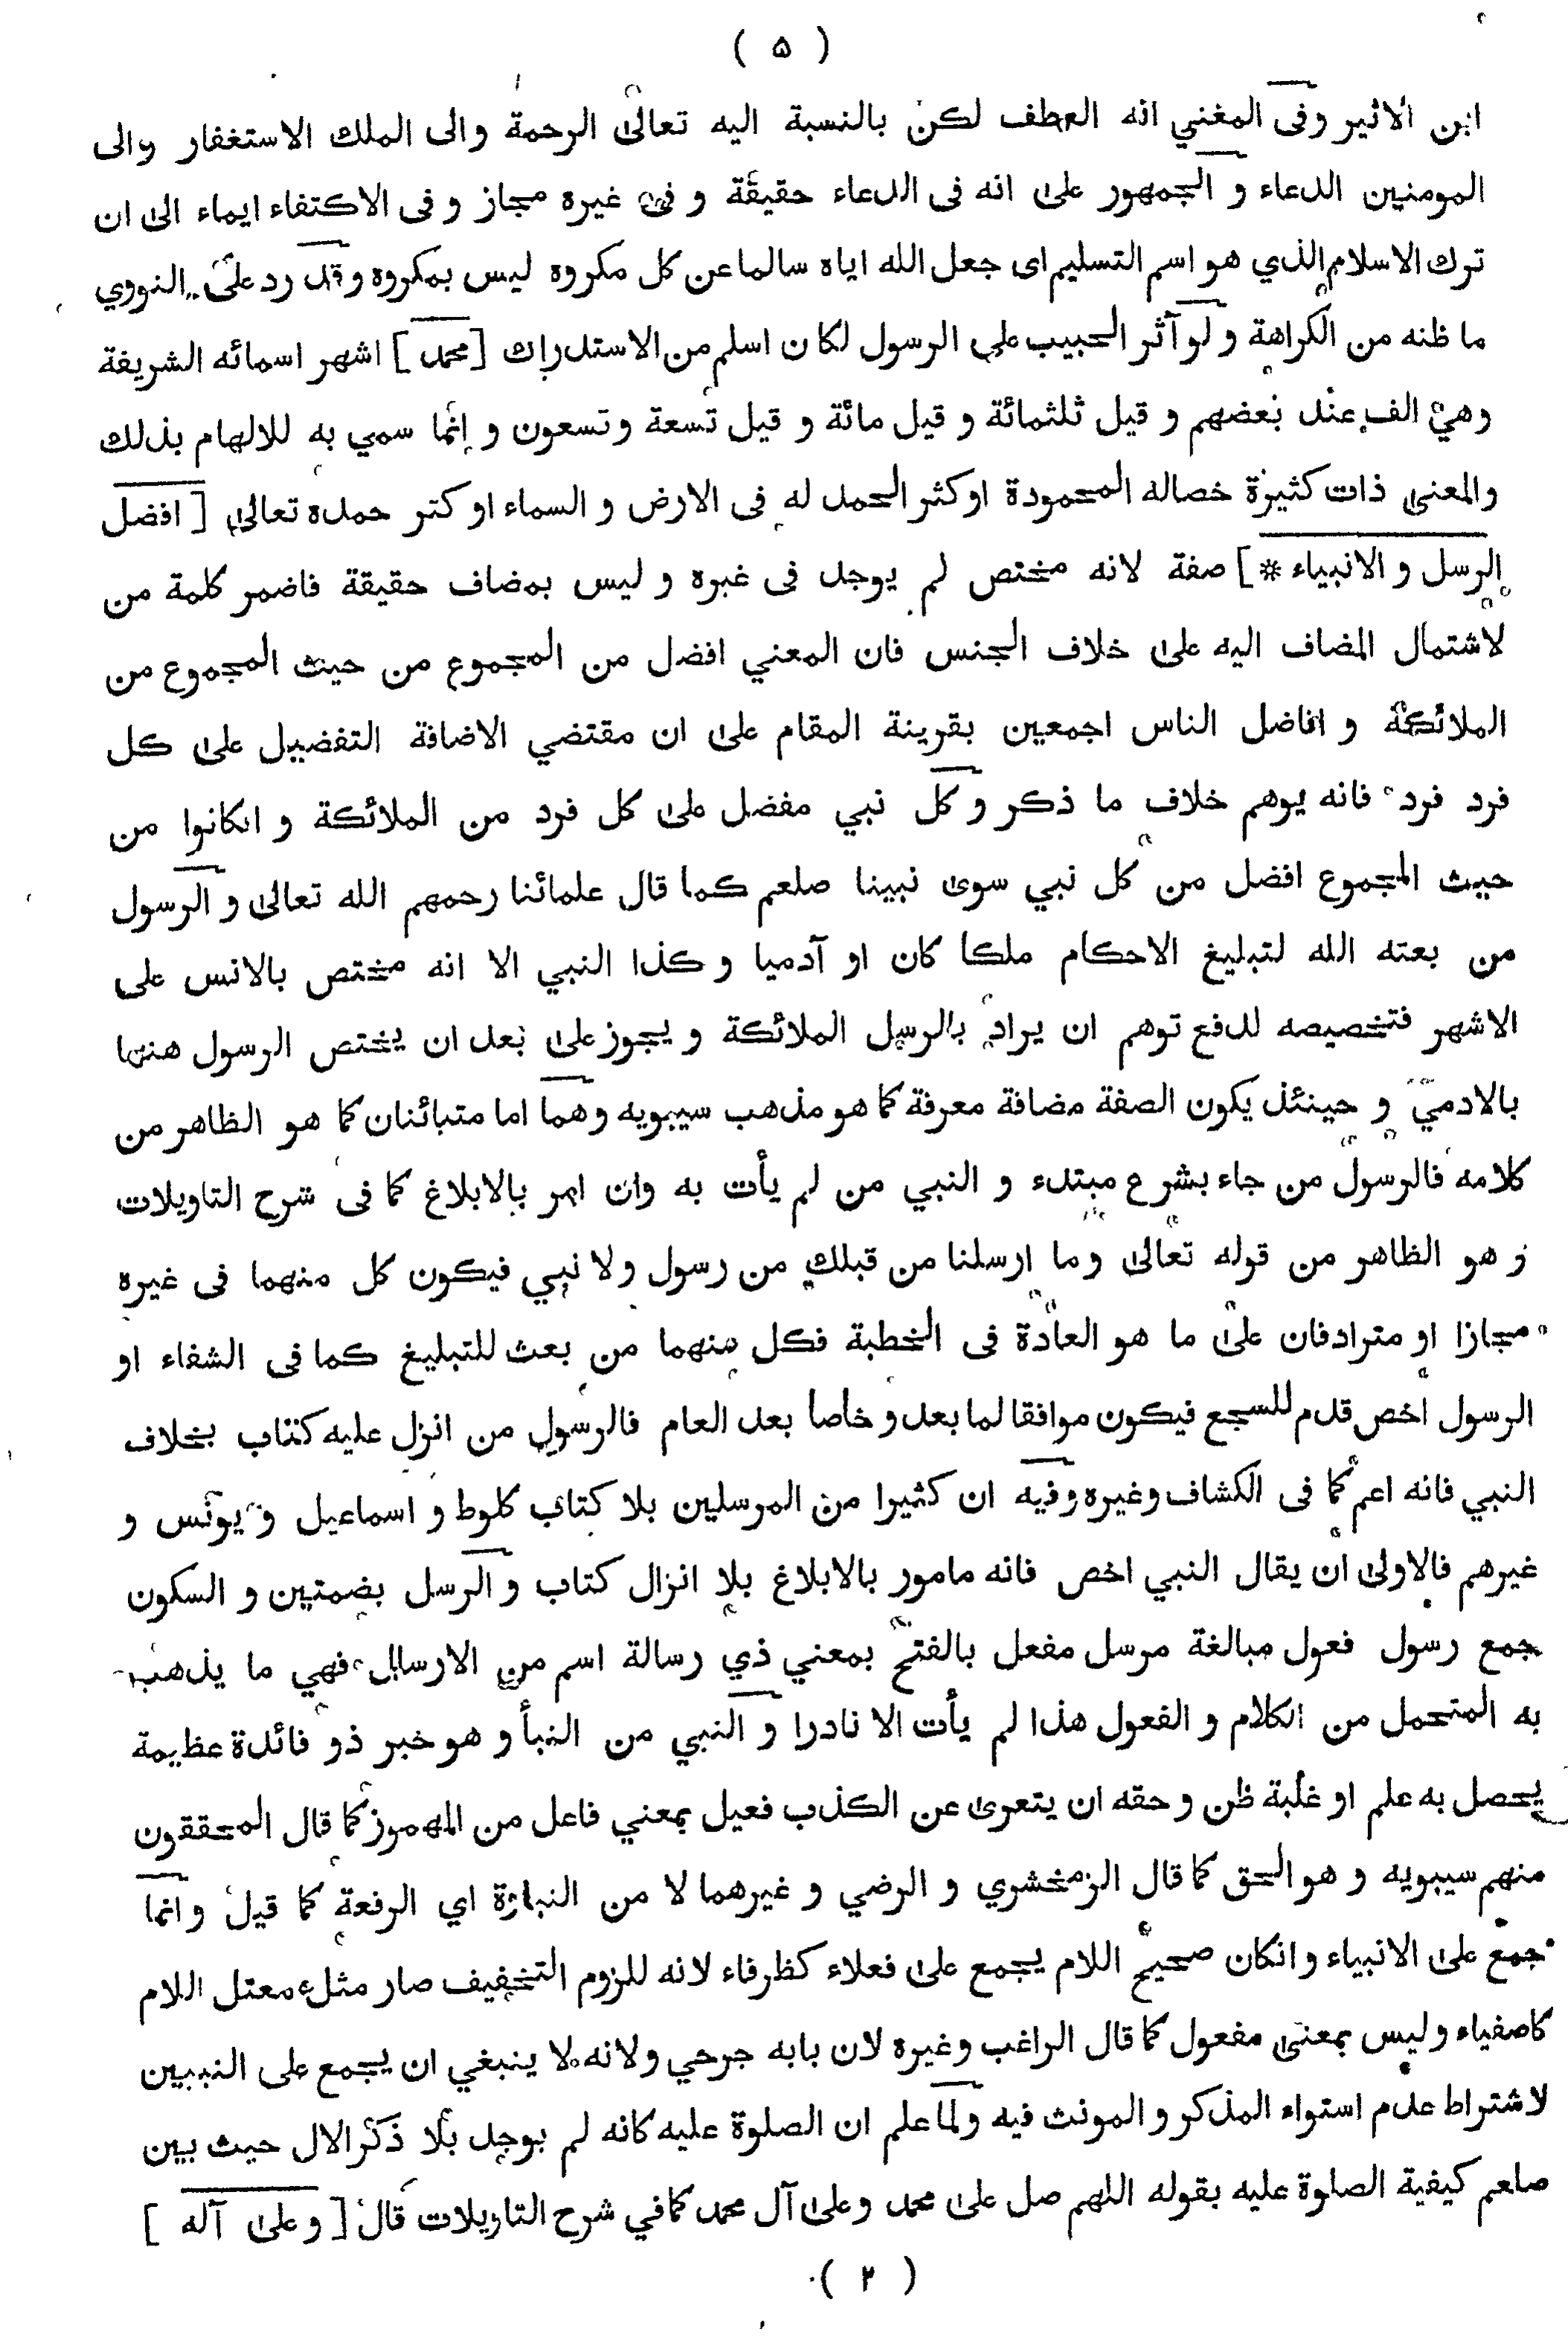 ( ۵ )
ابن الاثير وفى المغني انه العطف لكن بالنسبة اليه تعالى الرحمة والى الملك الاستغفار والى
المومنين الدعاء و الجمهور على انه فى الدعاء حقيقة و فى غيره مجاز و فى الاكتفاء ايماء الى ان
ترك الاسلام الذي هو اسم التسليم اى جعل الله اياه سالما عن كل مكروه ليس بمكروه وقد رد على النووي
ما ظنه من الكراهة و لو آثر الحبيب على الرسول لكان اسلم من الاستدراك [ محمد ] اشهر اسمائه الشريفة
وهي الف عند بعضهم و قيل ثلثمائة و قيل مائة و قيل تسعة وتسعون و إنما سمي به للالهام بذلك
والمعنى ذات كثيرة خصاله المحمودة او كثر الحمد له فى الارض و السماء او كثر حمده تعالى [ افضل
الرسل و الانبياء * ] صفة لانه مختص لم يوجد فى غيره و ليس بمضاف حقيقة فاضمر كلمة من
لاشتمال المضاف اليه على خلاف الجنس فان المعني افضل من المجموع من حيث المجموع من
الملائكة و افاضل الناس اجمعين بقرينة المقام على ان مقتضي الاضافة التفضيل على كل
فرد فرد فانه يوهم خلاف ما ذكر و كل نبي مفضل على كل فرد من الملائكة و انكانوا من
حيث المجموع افضل من كل نبي سوى نبينا صلعم كما قال علمائنا رحمهم الله تعالى و الرسول
من بعثه الله لتبليغ الاحكام ملكا كان او آدميا و كذا النبي الا انه مختص بالانس على
الاشهر فتخصيصه لدفع توهم ان يراد بالرسل الملائكة و يجوز على بعد ان يختص الرسول ههنا
بالادمي و حينئذ يكون الصفة مضافة معرفة كما هو مذهب سيبويه وهما اما متبائنان كما هو الظاهر من
كلامه فالرسول من جاء بشرع مبتدء و النبي من لم يأت به وان امر بالابلاغ كما فى شرح التاويلات
و هو الظاهر من قوله تعالى وما ارسلنا من قبلك من رسول ولا نبي فيكون كل منهما فى غيره
مجازا او مترادفان على ما هو العادة فى الخطبة فكل منهما من بعث للتبليغ كما فى الشفاء او
الرسول اخص قدم للسجع فيكون موافقا لما بعد و خاصا بعد العام فالرسول من انزل عليه كتاب بخلاف
النبي فانه اعم كما فى الكشاف وغيره وفيه ان كثيرا من المرسلين بلا كتاب كلوط و اسماعيل و يونس و
غيرهم فالاولى ان يقال النبي اخص فانه مامور بالابلاغ بلا انزال كتاب و الرسل بضمتين و السكون
جمع رسول فعول مبالغة مرسل مفعل بالفتح بمعني ذي رسالة اسم من الارسال فهي ما يذهب
به المتحمل من الكلام و الفعول هذا لم يأت الا نادرا و النبي من النبأ و هو خبر ذو فائدة عظيمة
يحصل به علم او غلبة ظن و حقه ان يتعرى عن الكذب فعيل بمعني فاعل من المهموز كما قال المحققون
منهم سيبويه و هو الحق كما قال الزمخشري و الرضي و غيرهما لا من النباوة اي الرفعة كما قيل و انما
جمع على الانبياء و انكان صحيح اللام يجمع على فعلاء كظرفاء لانه للزوم التخفيف صار مثل معتل اللام
كاصفياء وليس بمعنى مفعول كما قال الراغب وغيره لان بابه جرحي ولانه لا ينبغي ان يجمع على النبيين
لاشتراط عدم استواء المذكر و المونث فيه ولما علم ان الصلوة عليه كانه لم يوجد بلا ذكر الال حيث بين
صلعم كيفية الصلوة عليه بقوله اللهم صل على محمد وعلى آل محمد كما في شرح التاويلات قال [ و على آله ]
( ٢ )